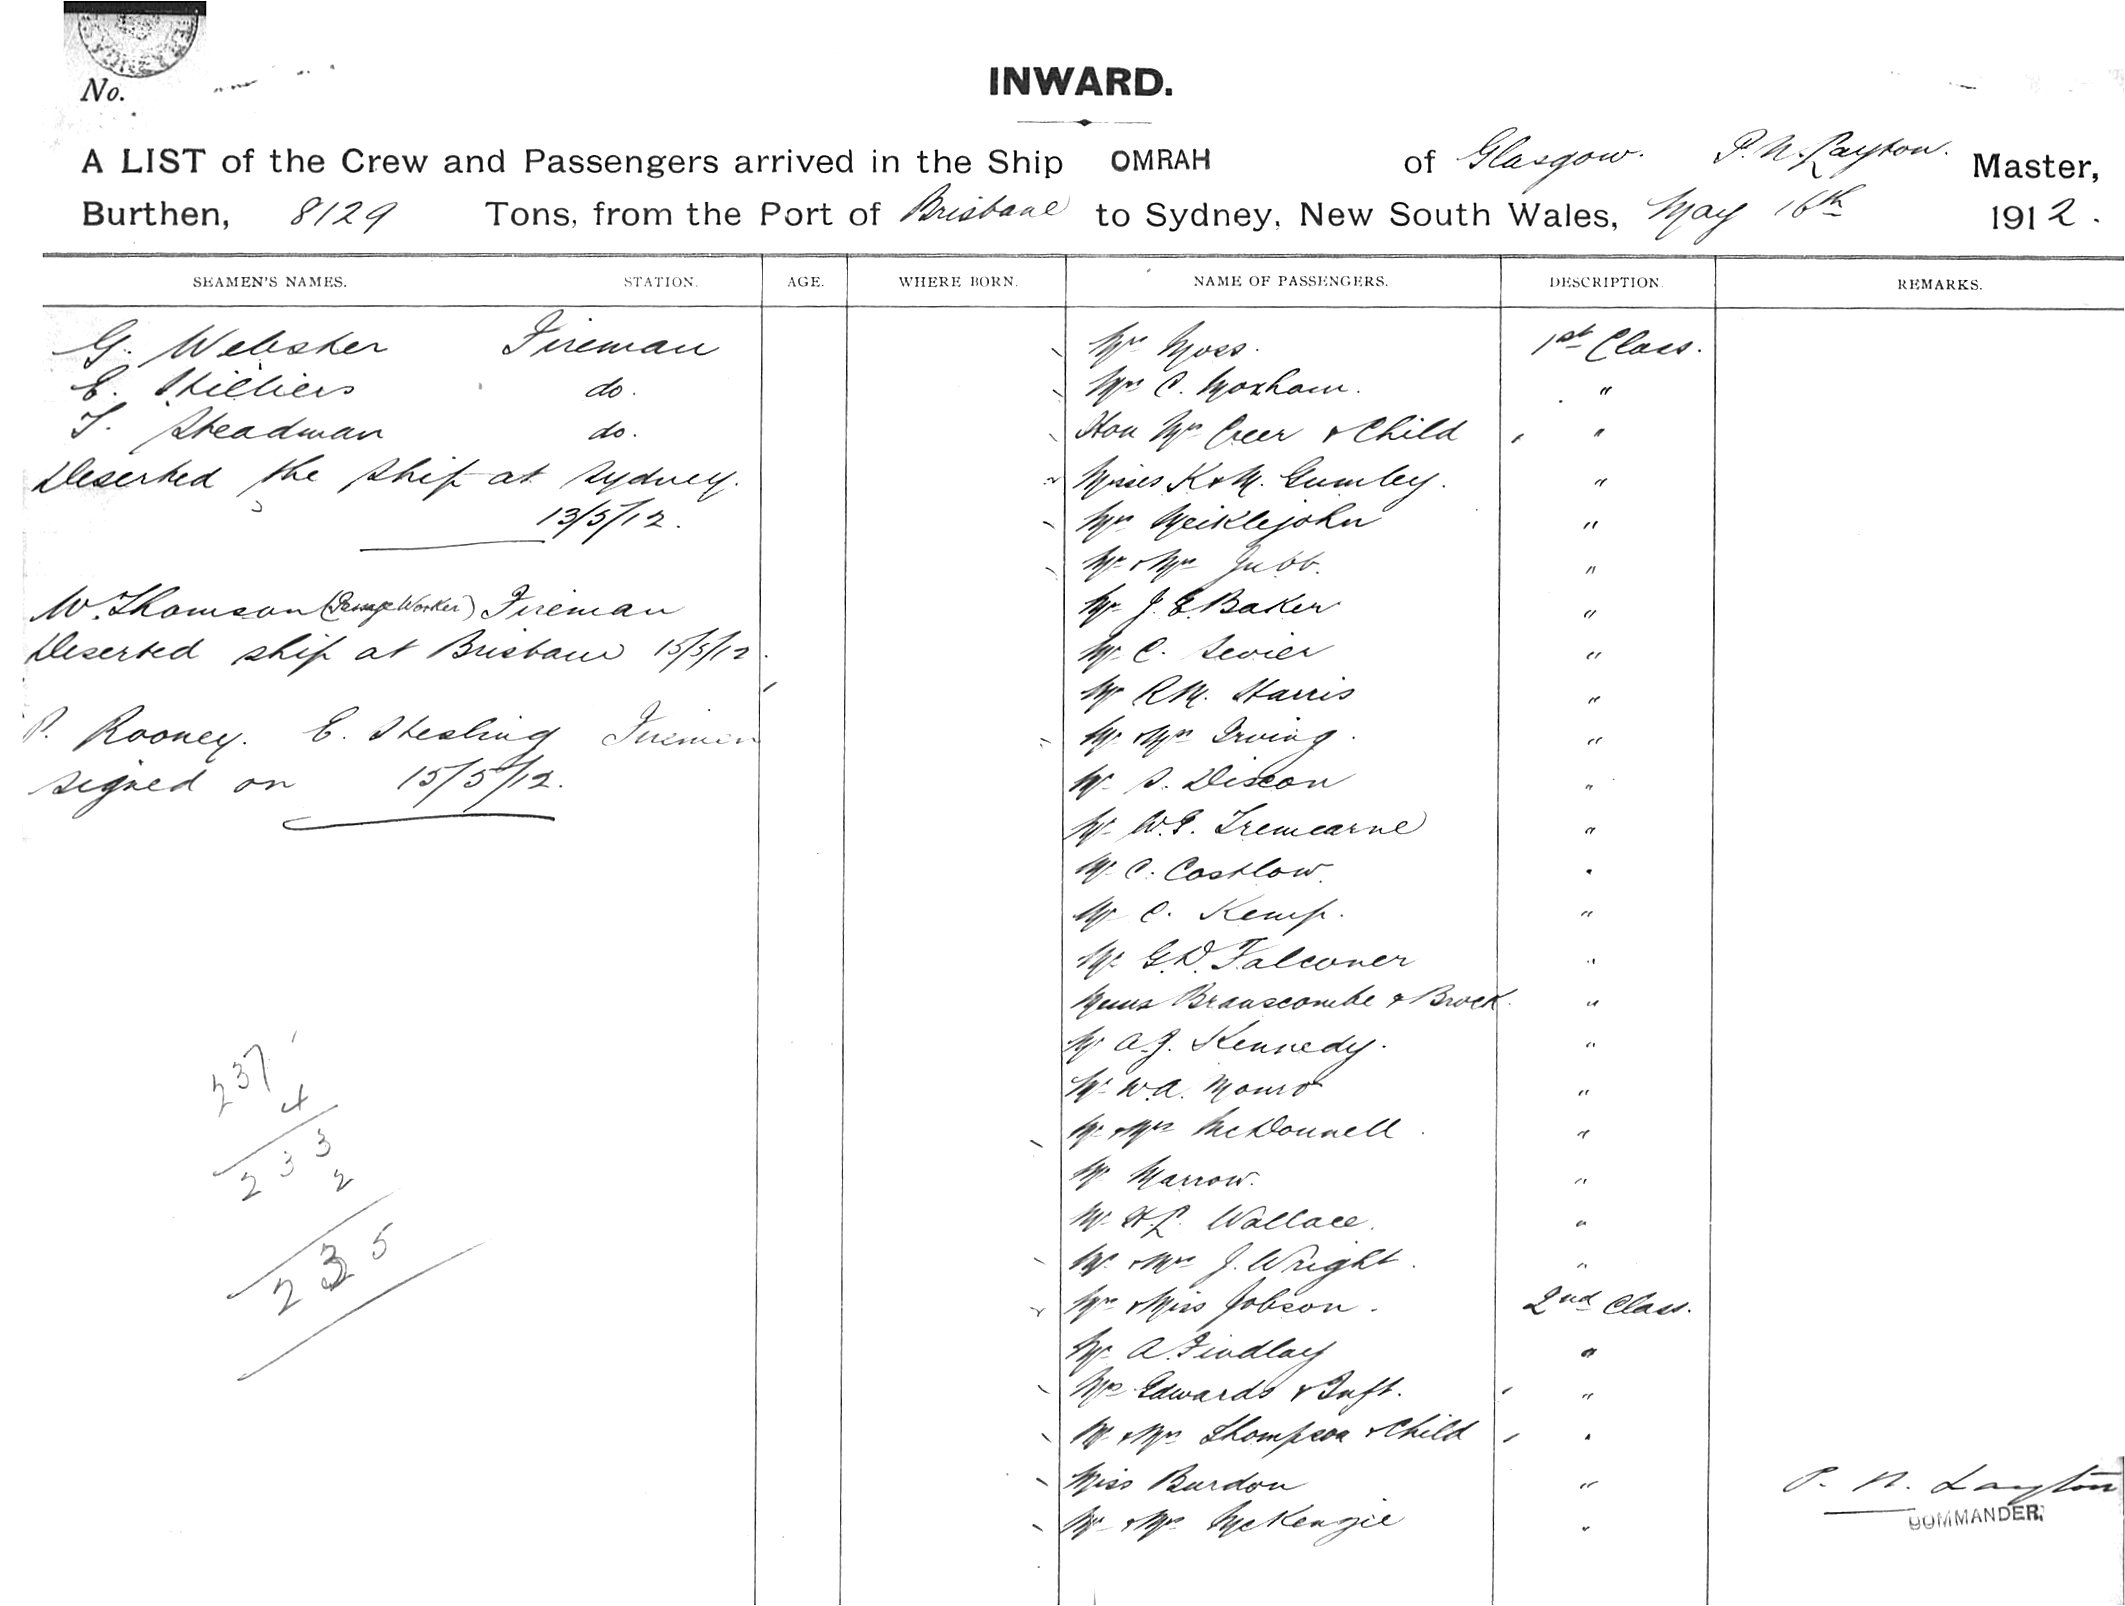 No.
INWARD.
A LIST of the Crew and Passengers arrived in the Ship OMRAH of Glasgow. P. N. Layton. Master,
Burthen, 8129 Tons, from the Port of Brisbane to Sydney, New South Wales, May 16th 1912.
SEAMEN'S NAMES. STATION. AGE. WHERE BORN. NAME OF PASSENGERS. DESCRIPTION. REMARKS.
G. Webster Fireman
E. Hilliers do.
T. Steadman do.
Deserted the ship at Sydney.
13/5/12.
W. Thomson (Passage Worker) Fireman
Deserted ship at Brisbane 15/5/12.
P. Rooney. E. Stesling Firemen
signed on 15/5/12.
237
4
233
2
235
Mrs Moss. 1st Class.
Mrs C. Moxham. "
Hon Mrs Creer & Child "
Misses K & M. Gumley. "
Mrs Meiklejohn "
Mr & Mrs Jubb. "
Mr J. E. Baker "
Mr C. Sevier "
Mr R.M. Harris "
Mr & Mrs Irving. "
Mr S. Dixon "
Mr W.E. Tremearne "
Mr C. Costlow. "
Mr C. Kemp. "
Mr G.D. Falconer "
Messrs Branscombe & Brock. "
Mr A.J. Kennedy. "
Mr W.A. Monro "
Mr & Mrs McDonnell "
Mr Marrow. "
Mr H.L. Wallace. "
Mr & Mrs J. Wright. "
Mrs & Miss Jobson. 2nd Class.
Mr A. Findlay "
Mrs Edwards & Inft. "
Mr & Mrs Thompson & Child "
Miss Burdon "
Mr & Mrs McKenzie "
P. N. Layton
COMMANDER.